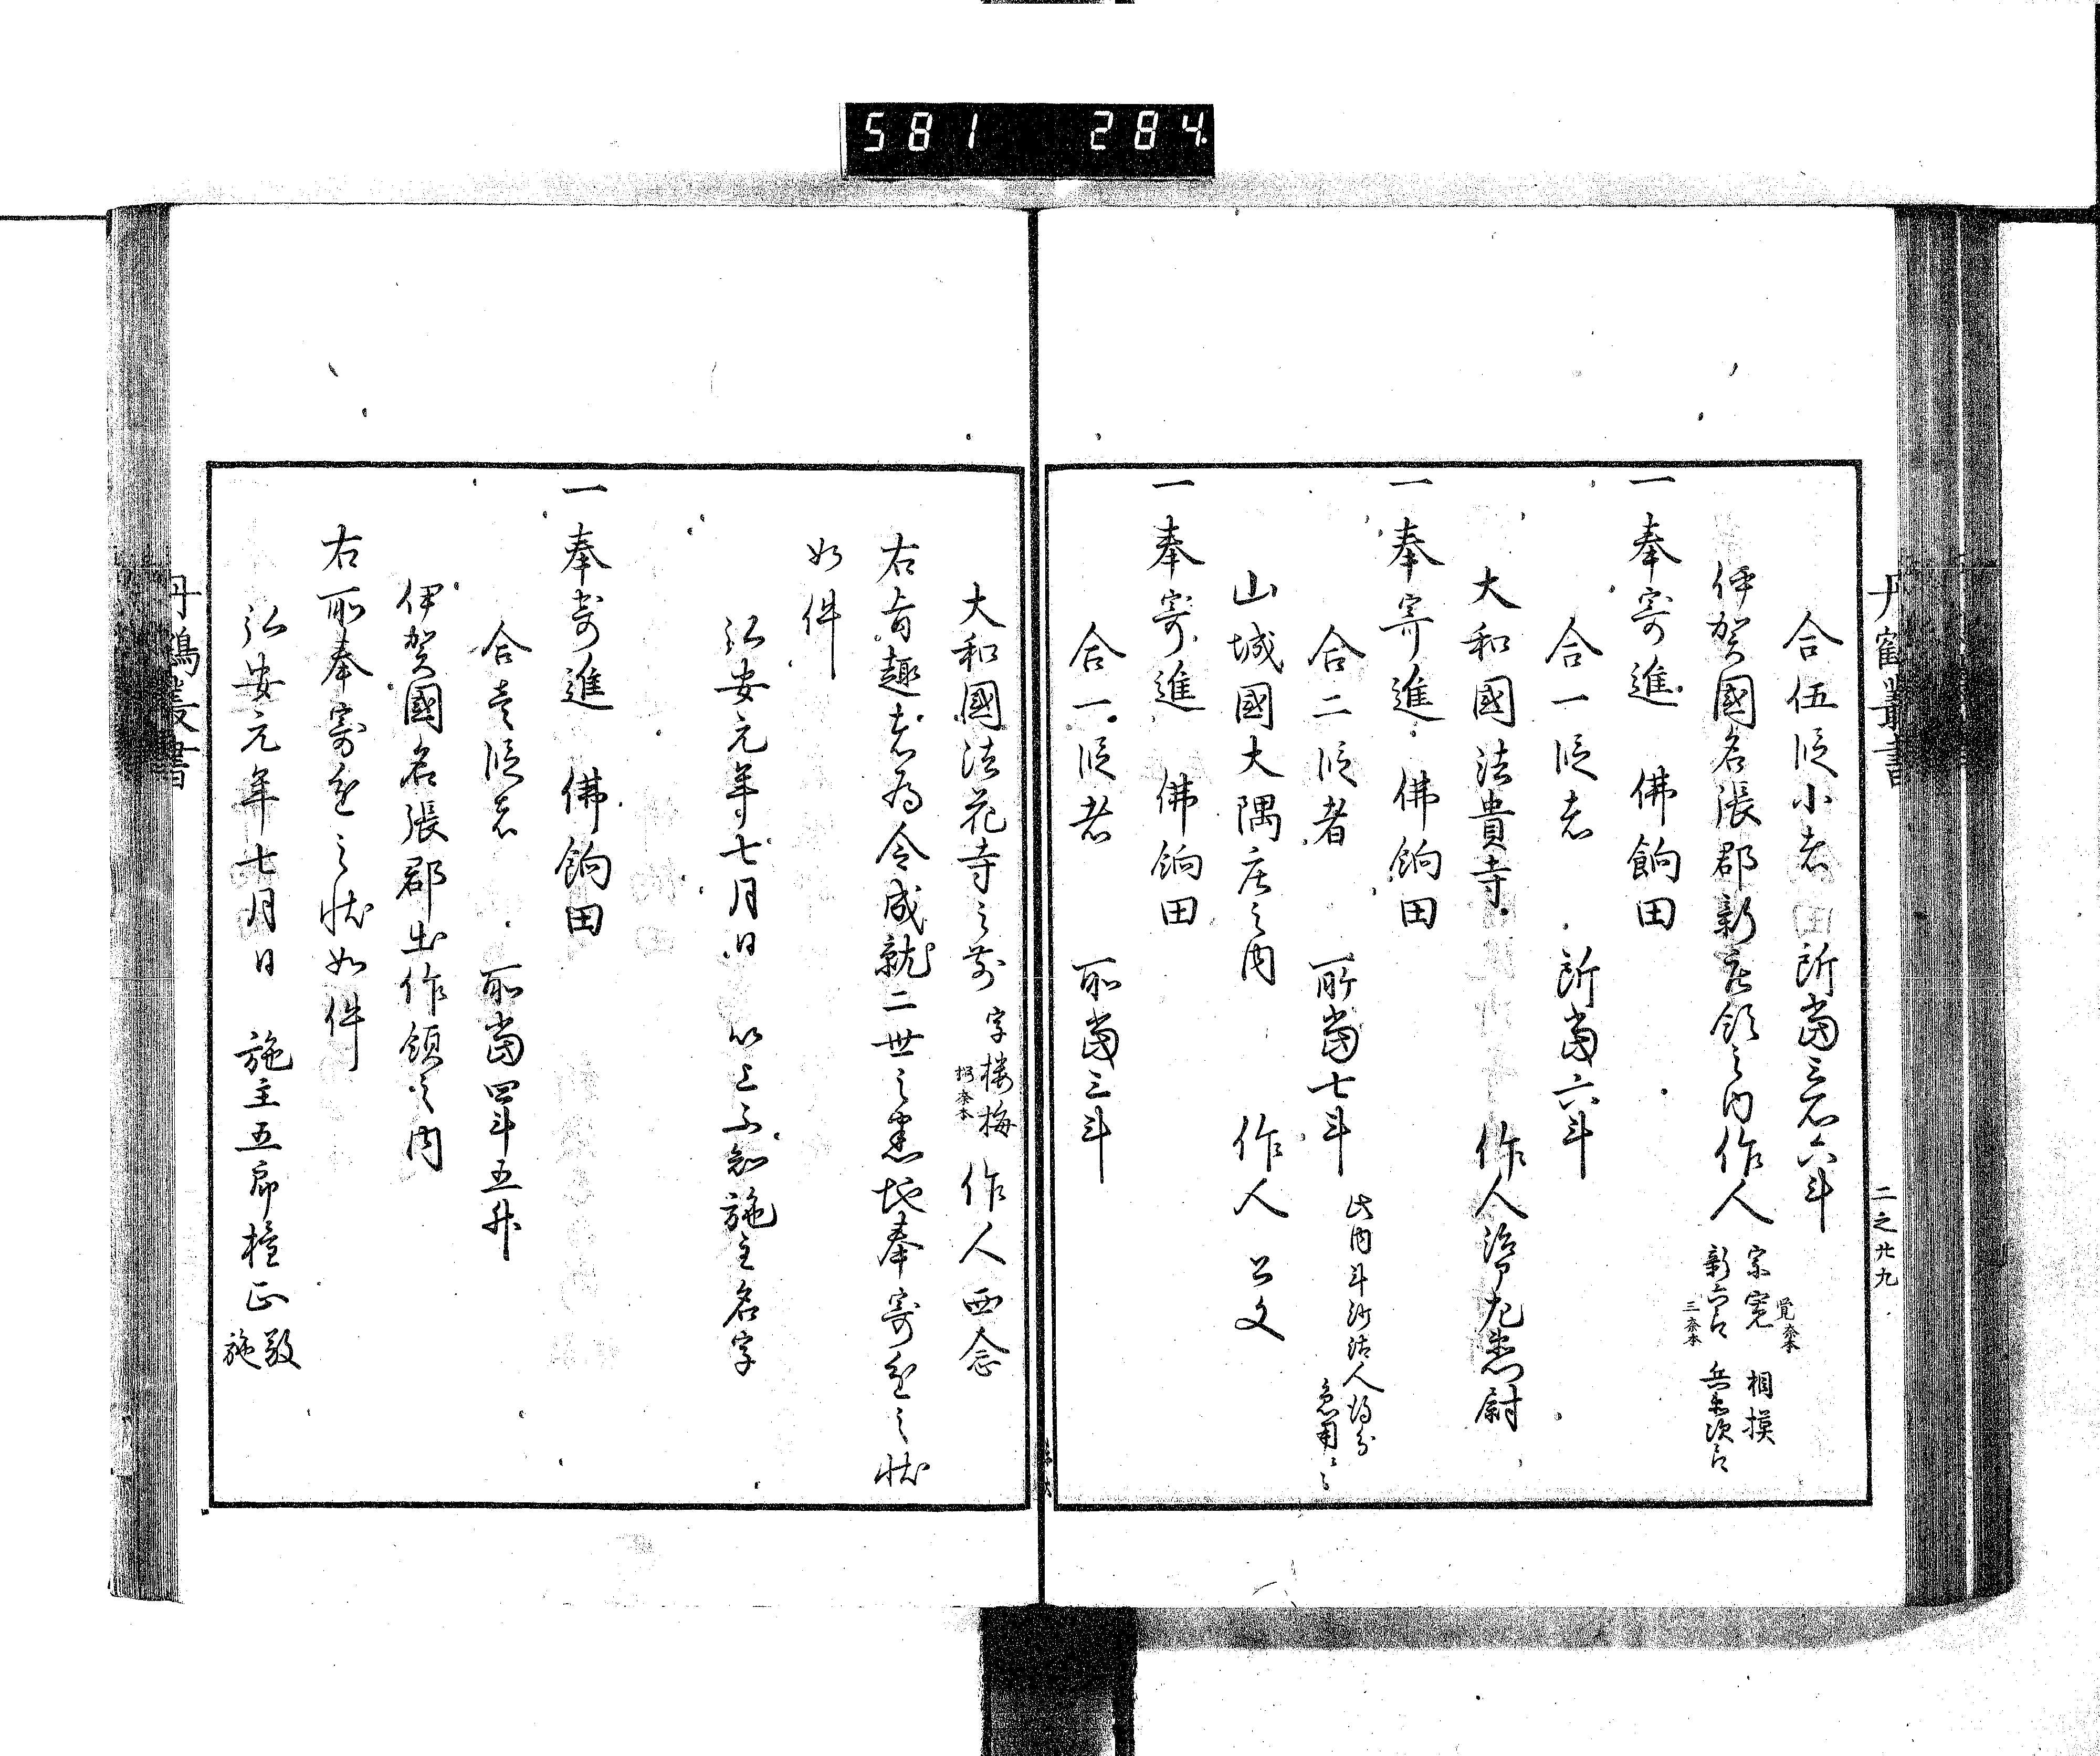 581 284
丹鶴叢書
二之廿九
合伍段小者 所當三石六斗
伊賀國名張郡新庄領之内作人 宗寛 相模
覚奈本
新六郎 兵衛次郎
三奈本
一奉寄進 佛餉田
合一段者 所當六斗
大和國法貴寺 作人 尉
一奉寄進 佛餉田
合二段者 所當七斗 此内斗
山城國大隅庄之内 作人 公文
一奉寄進 佛餉田
合一段者 所當三斗
大和國法花寺之前 字楼梅 作人西念
奈本
右旨趣者為令成就二世之悉地奉寄進之状
如件
弘安元年七月日 以上不知施主名字
一奉寄進 佛餉田
合壹段者 所當四斗五升
伊賀國名張郡出作領之内
右所奉寄進之状如件
弘安元年七月日 施主五師権正 敬
施
丹鶴叢書